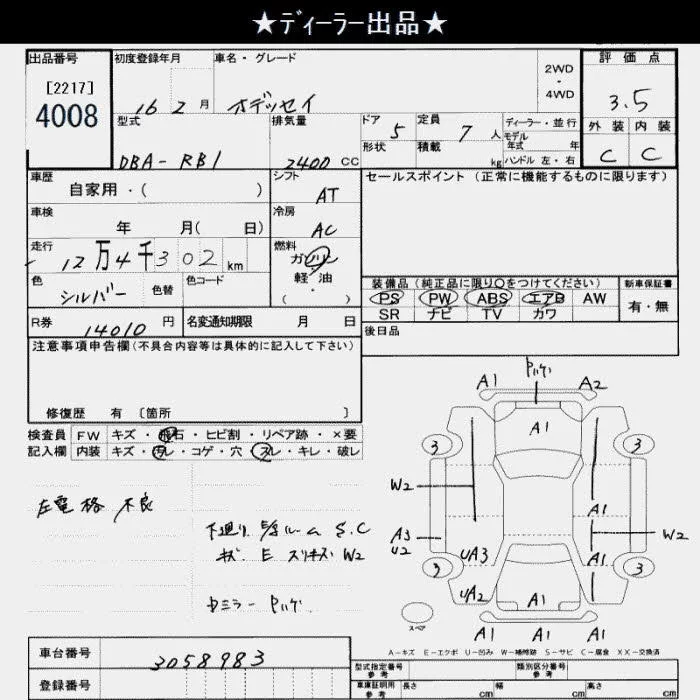 ★ディーラー出品★
出品番号
[2217]
4008
初度登録年月
16 2 月
車名・グレード
オデッセイ
2WD
・
4WD
評価点
3.5
外装 内装
C C
型式
DBA-RB1
排気量
2400 CC
ドア 5
形状
定員 7 人
積載 kg
ディーラー・並行
モデル
年式 年
ハンドル 左・右
車歴
自家用・( )
シフト
AT
車検
年 月( 日)
冷房
AC
走行
12万4千302 km
燃料
ガソリン
軽・油
( ・ )
色
シルバー
色替
色コード
R券
14010 円
名変通知期限 月 日
セールスポイント(正常に機能するものに限ります)
装備品(純正品に限り○をつけてください)
PS PW ABS エアB AW
SR ナビ TV カワ
新車保証書
有・無
後日品
注意事項申告欄(不具合内容等は具体的に記入して下さい)
修復歴 有 〔箇所 〕
検査員
記入欄
FW キズ・飛石・ヒビ割・リペア跡・×要
内装 キズ・汚レ・コゲ・穴・スレ・キレ・破レ
左電格 不良
下廻り E/gルーム S.C
キズ E スリキズ W2
中ミラー Pハゲ
Pハゲ
A1 A2
A1
3 3
W2
A1
A3
U2
W2
UA3 A1
3 3
UA2 A1
A1 A1 A1
スペア
A-キズ E-エクボ U-凹み W-補修跡 S-サビ C-腐食 XX-交換済
車台番号
3058983
登録番号
型式指定番号
参考
類別区分番号
参考
車庫証明用
参考
長さ cm 幅 cm 高さ cm